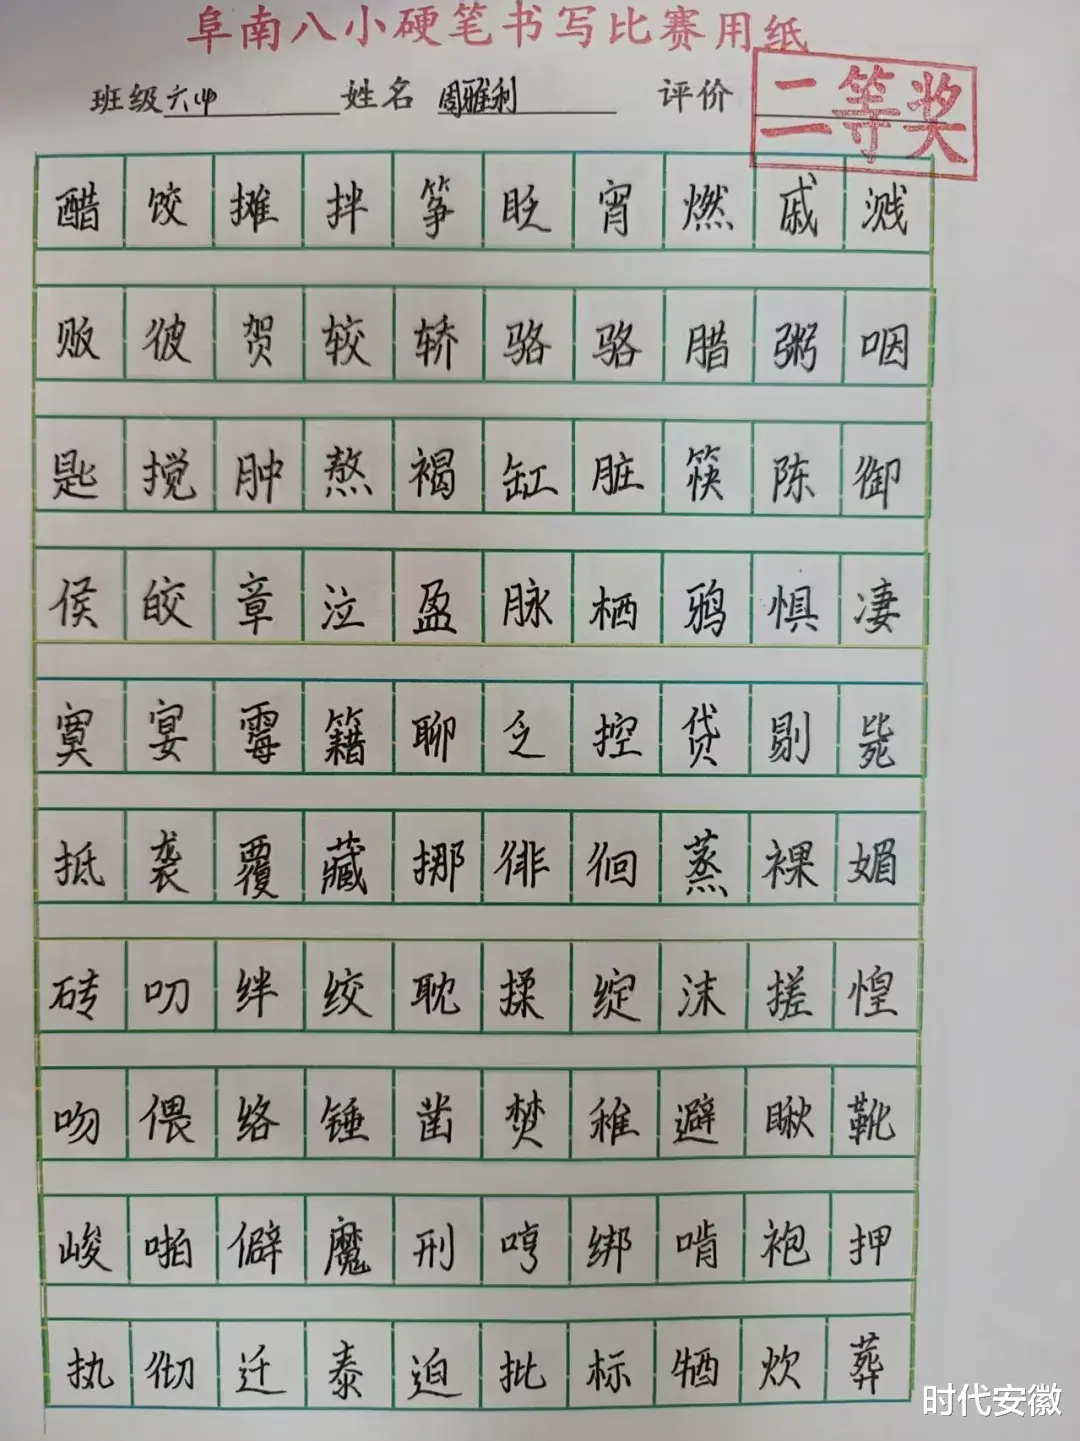 阜南八小硬笔书写比赛用纸
班级 六(4) 姓名 周雅利 评价 二等奖
醋饺摊拌筝眨宵燃戚溅
贩彼贺较轿骆骆腊粥咽
匙搅肿熬褐缸脏筷陈御
侯皎章泣盈脉栖鸦惧凄
寞宴霉籍聊乏控贷剔毙
抵袭覆藏挪徘徊蒸裸媚
砖叨绊绞耽揉绽沫搓惶
吻偎络锤凿焚稚避瞅靴
峻啪僻魔刑哼绑啃袍押
执彻迁泰迫批标牺炊葬
时代安徽